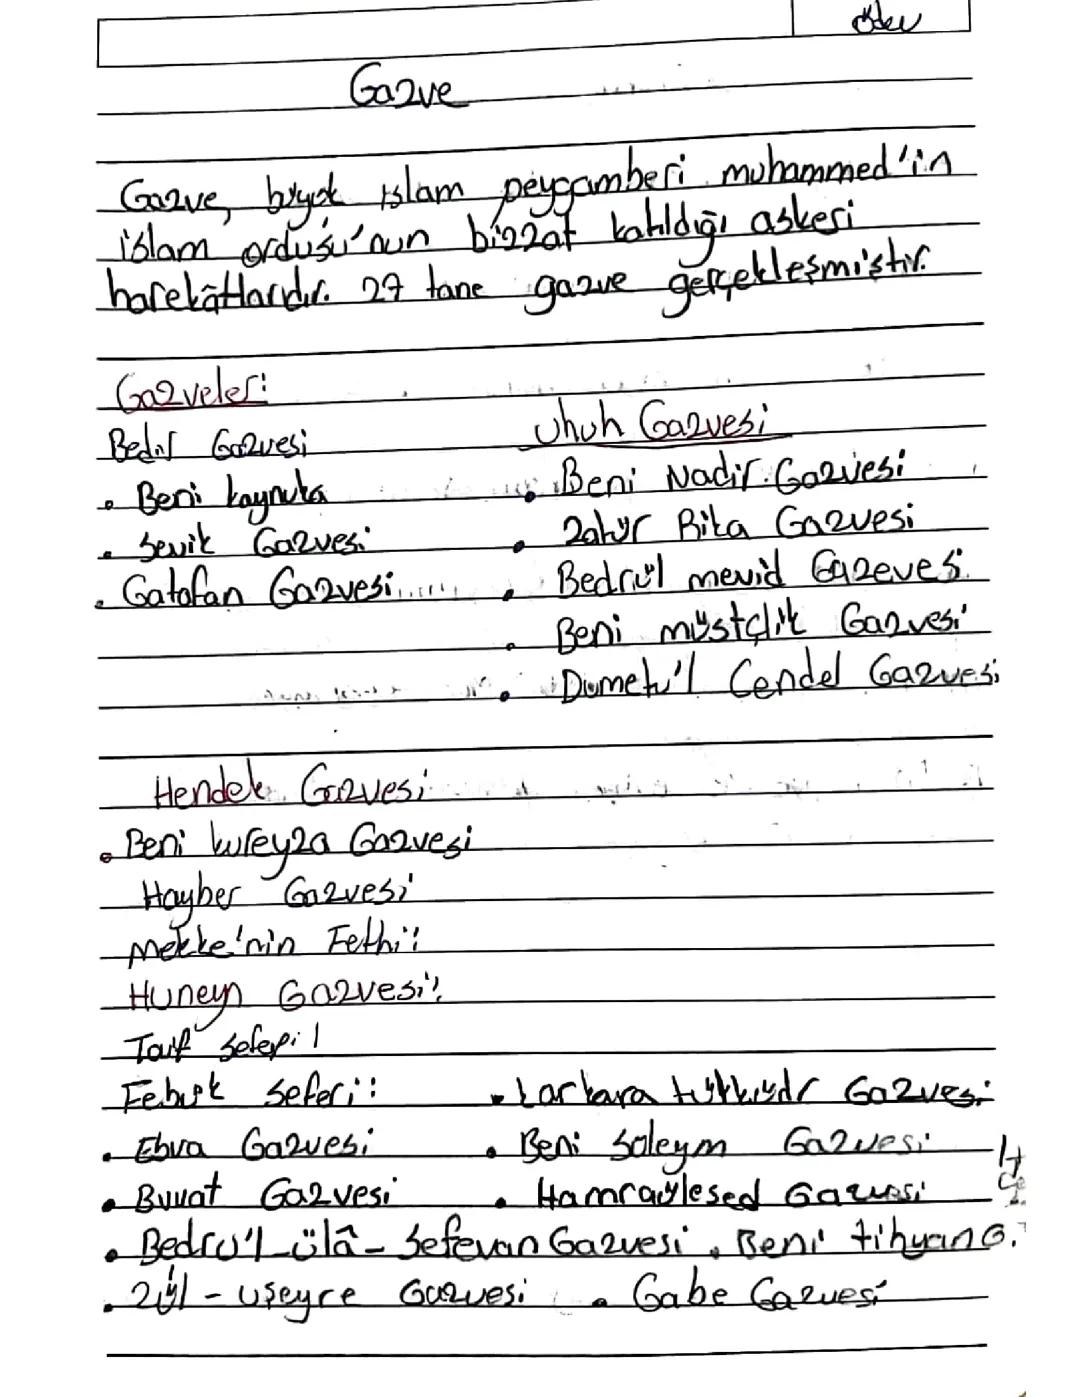 Ödev
Gazve
Gazve, büyük islam peygamberi muhammed'in
islam ordusu'nun bizzat katıldığı askeri
harekâtlarıdır. 27 tane gazve gerçekleşmiştir.
Gazveler:
Bedir Gazvesi
Uhuh Gazvesi
• Beni kaynuka
• Beni Nadir Gazvesi
• Sevik Gazvesi
• Zatur Rika Gazvesi
• Gatafan Gazvesi
• Bedrül mevid Gazevesi
• Beni müstçlik Gazvesi
• Dumetu'l Cendel Gazvesi
Hendek Gazvesi
• Beni kureyza Gazvesi
Hayber Gazvesi
Mekke'nin Fethi!
Huneyn Gazvesi!
Taif seferi!
Tebük seferi!
• karkara Gazvesi
• Ebva Gazvesi
• Beni Süleym Gazvesi
• Buvat Gazvesi
• Hamraülesed Gazvesi
• Bedru'l-ülâ-Sefevan Gazvesi • Beni lihyan G.
• Zül-uşeyre Gazvesi • Gabe Gazvesi